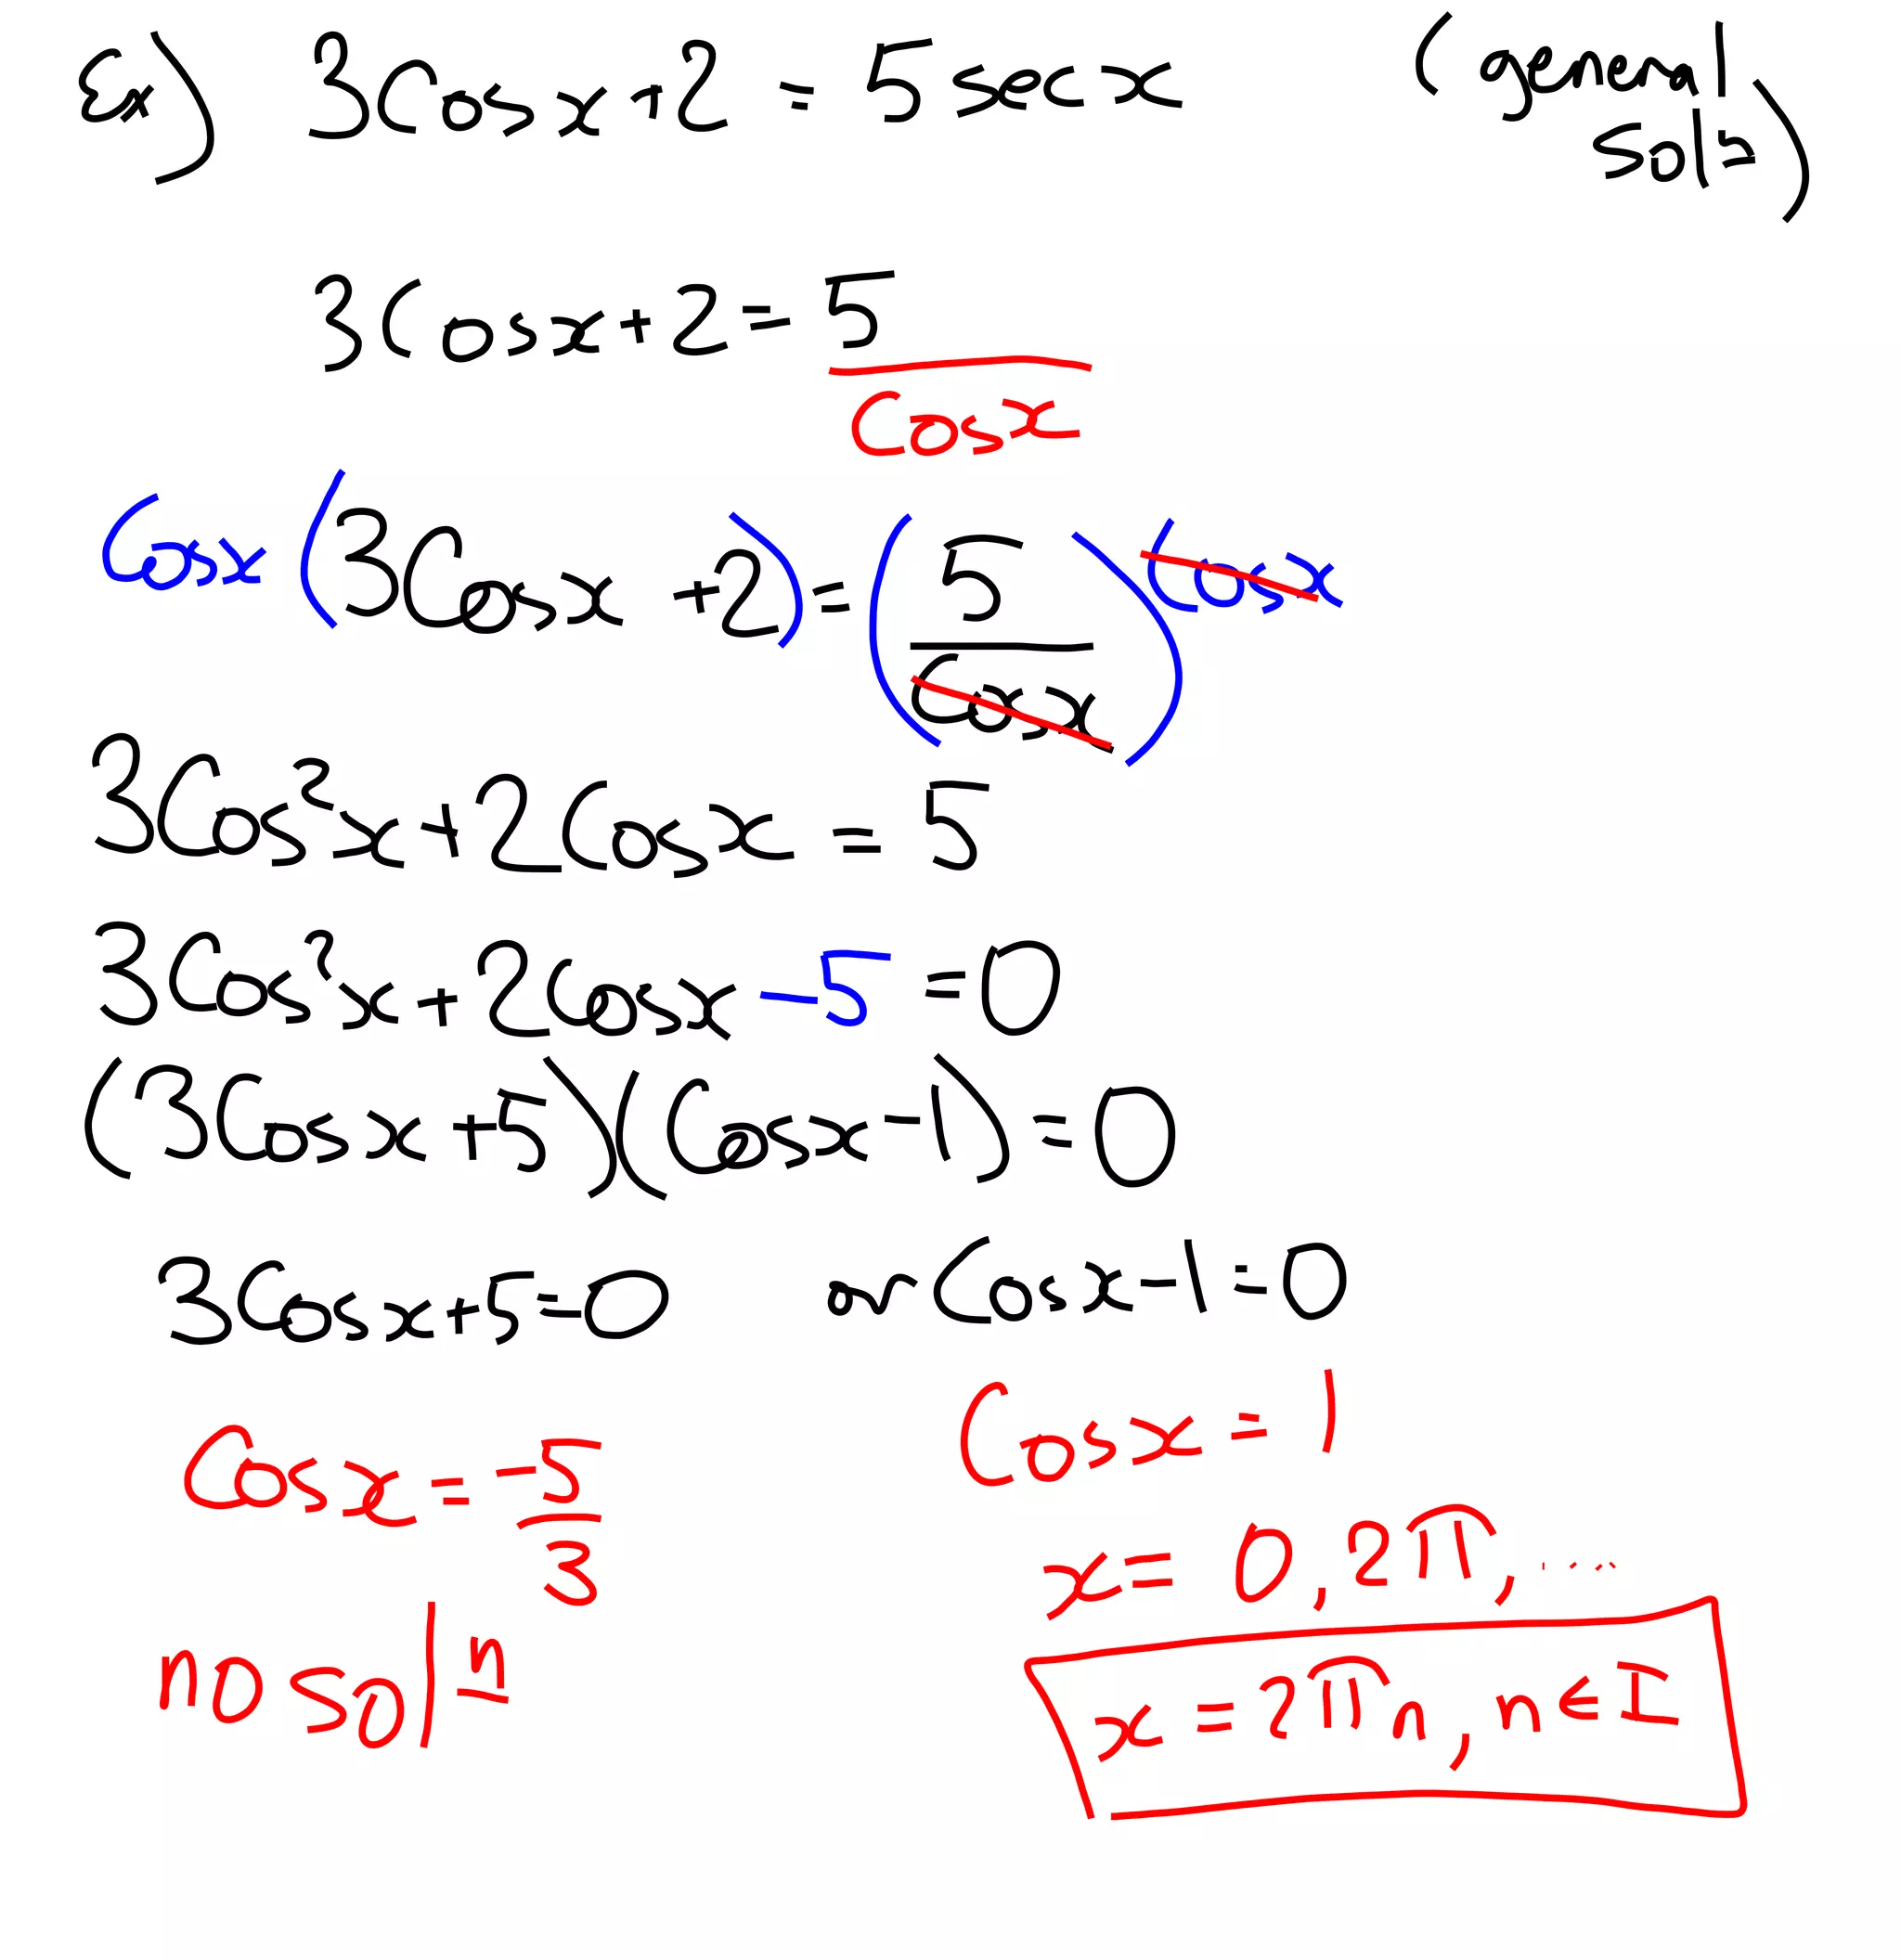 Ex) 3Cosx+2 = 5secx (general
soln)
3Cosx+2=5/Cosx
Cosx(3Cosx+2)=(5/Cosx)Cosx
3Cos²x+2Cosx=5
3Cos²x+2Cosx-5=0
(3Cosx+5)(Cosx-1)=0
3Cosx+5=0 or Cosx-1=0
Cosx=1
Cosx=-5/3
x=0,2π,....
no soln
x=2πn, n∈I